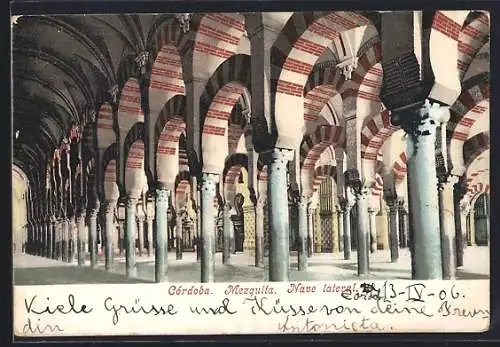 Córdoba. Mezquita. Nave lateral. 13-IV-06.
Viele Grüsse und Küsse von deine Freun
din Antonieta.